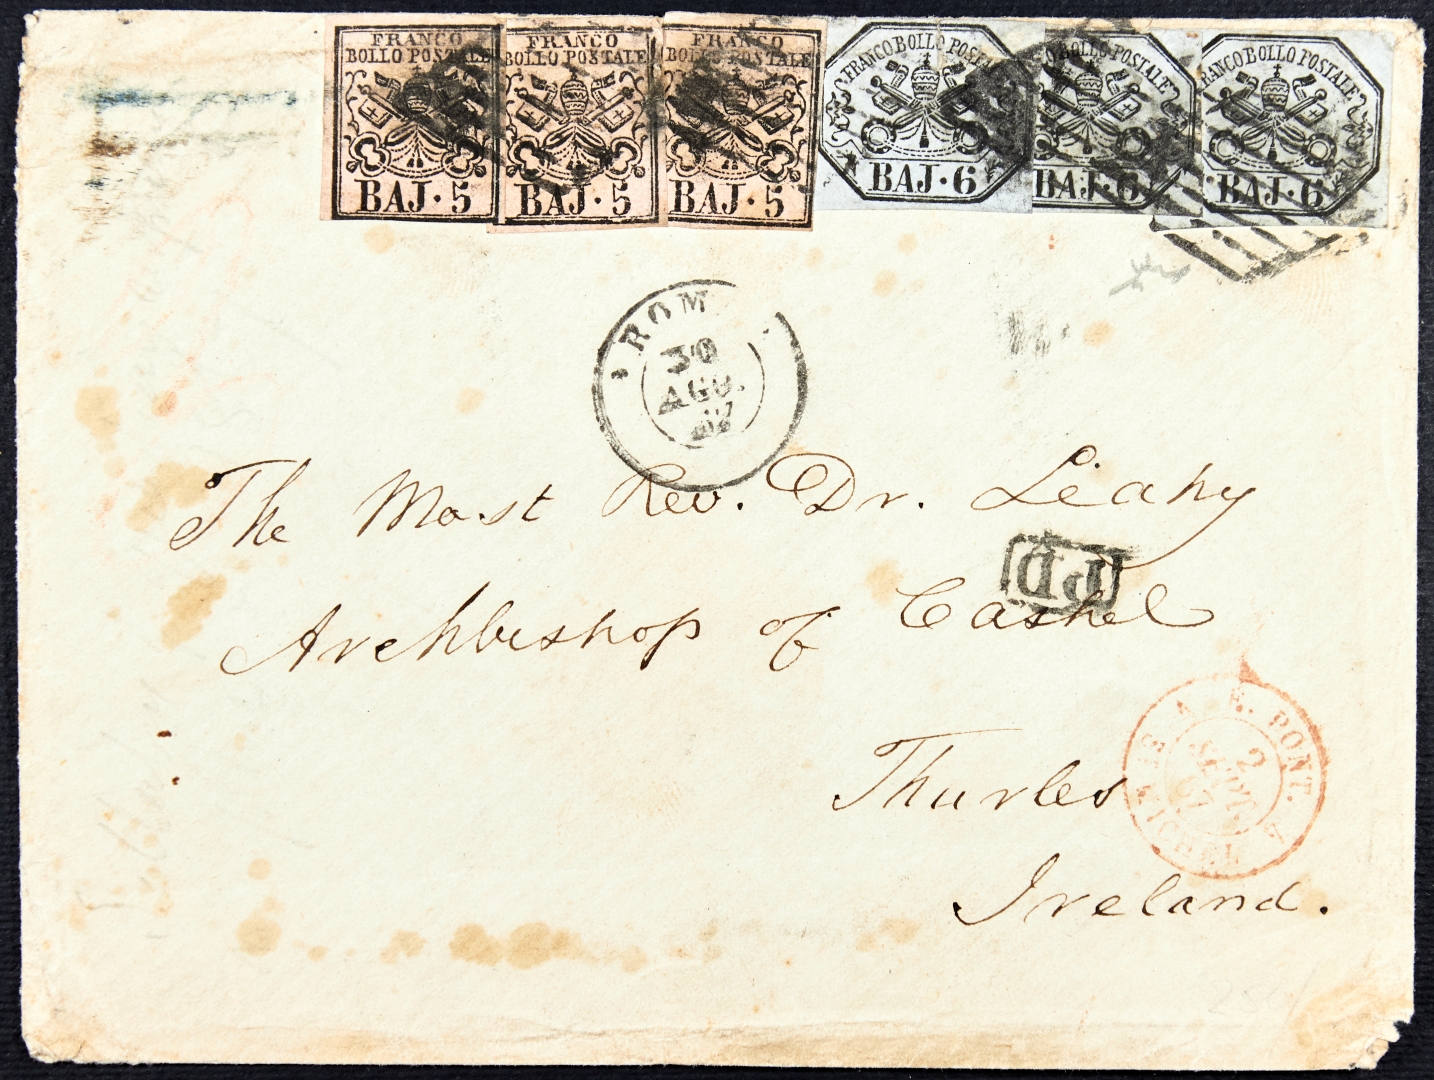 FRANCO
BOLLO POSTALE
BAJ · 5
FRANCO
BOLLO POSTALE
BAJ · 5
FRANCO
BOLLO POSTALE
BAJ · 5
FRANCO BOLLO POSTALE
BAJ · 6
BOLLO POSTALE
BAJ · 6
FRANCO BOLLO POSTALE
BAJ · 6
ROM
30
AGO.
The Most Rev. Dr. Leahy
PD
Archbishop of Cashel
E. PONT.
2
SEPT
67
Thurles
Ireland.